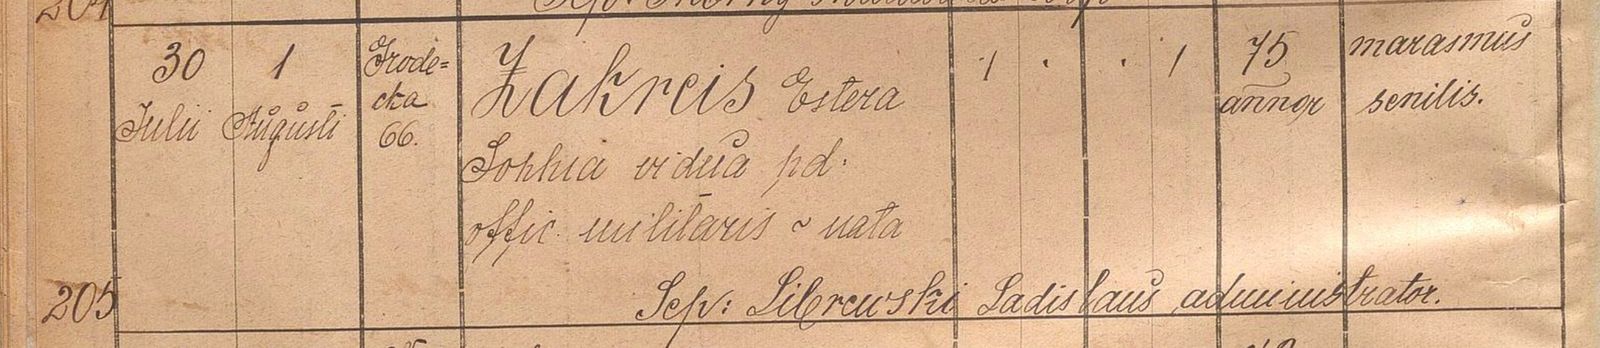 204
Sep:
30 1 Grode= Zakreis Estera 1 . . 1 75 marasmus
Julii Augusti cka annor senilis.
66.
Sophia vidua pd.
offic. militaris ~ nata
205 Sep: Librewski Ladislaus administrator.